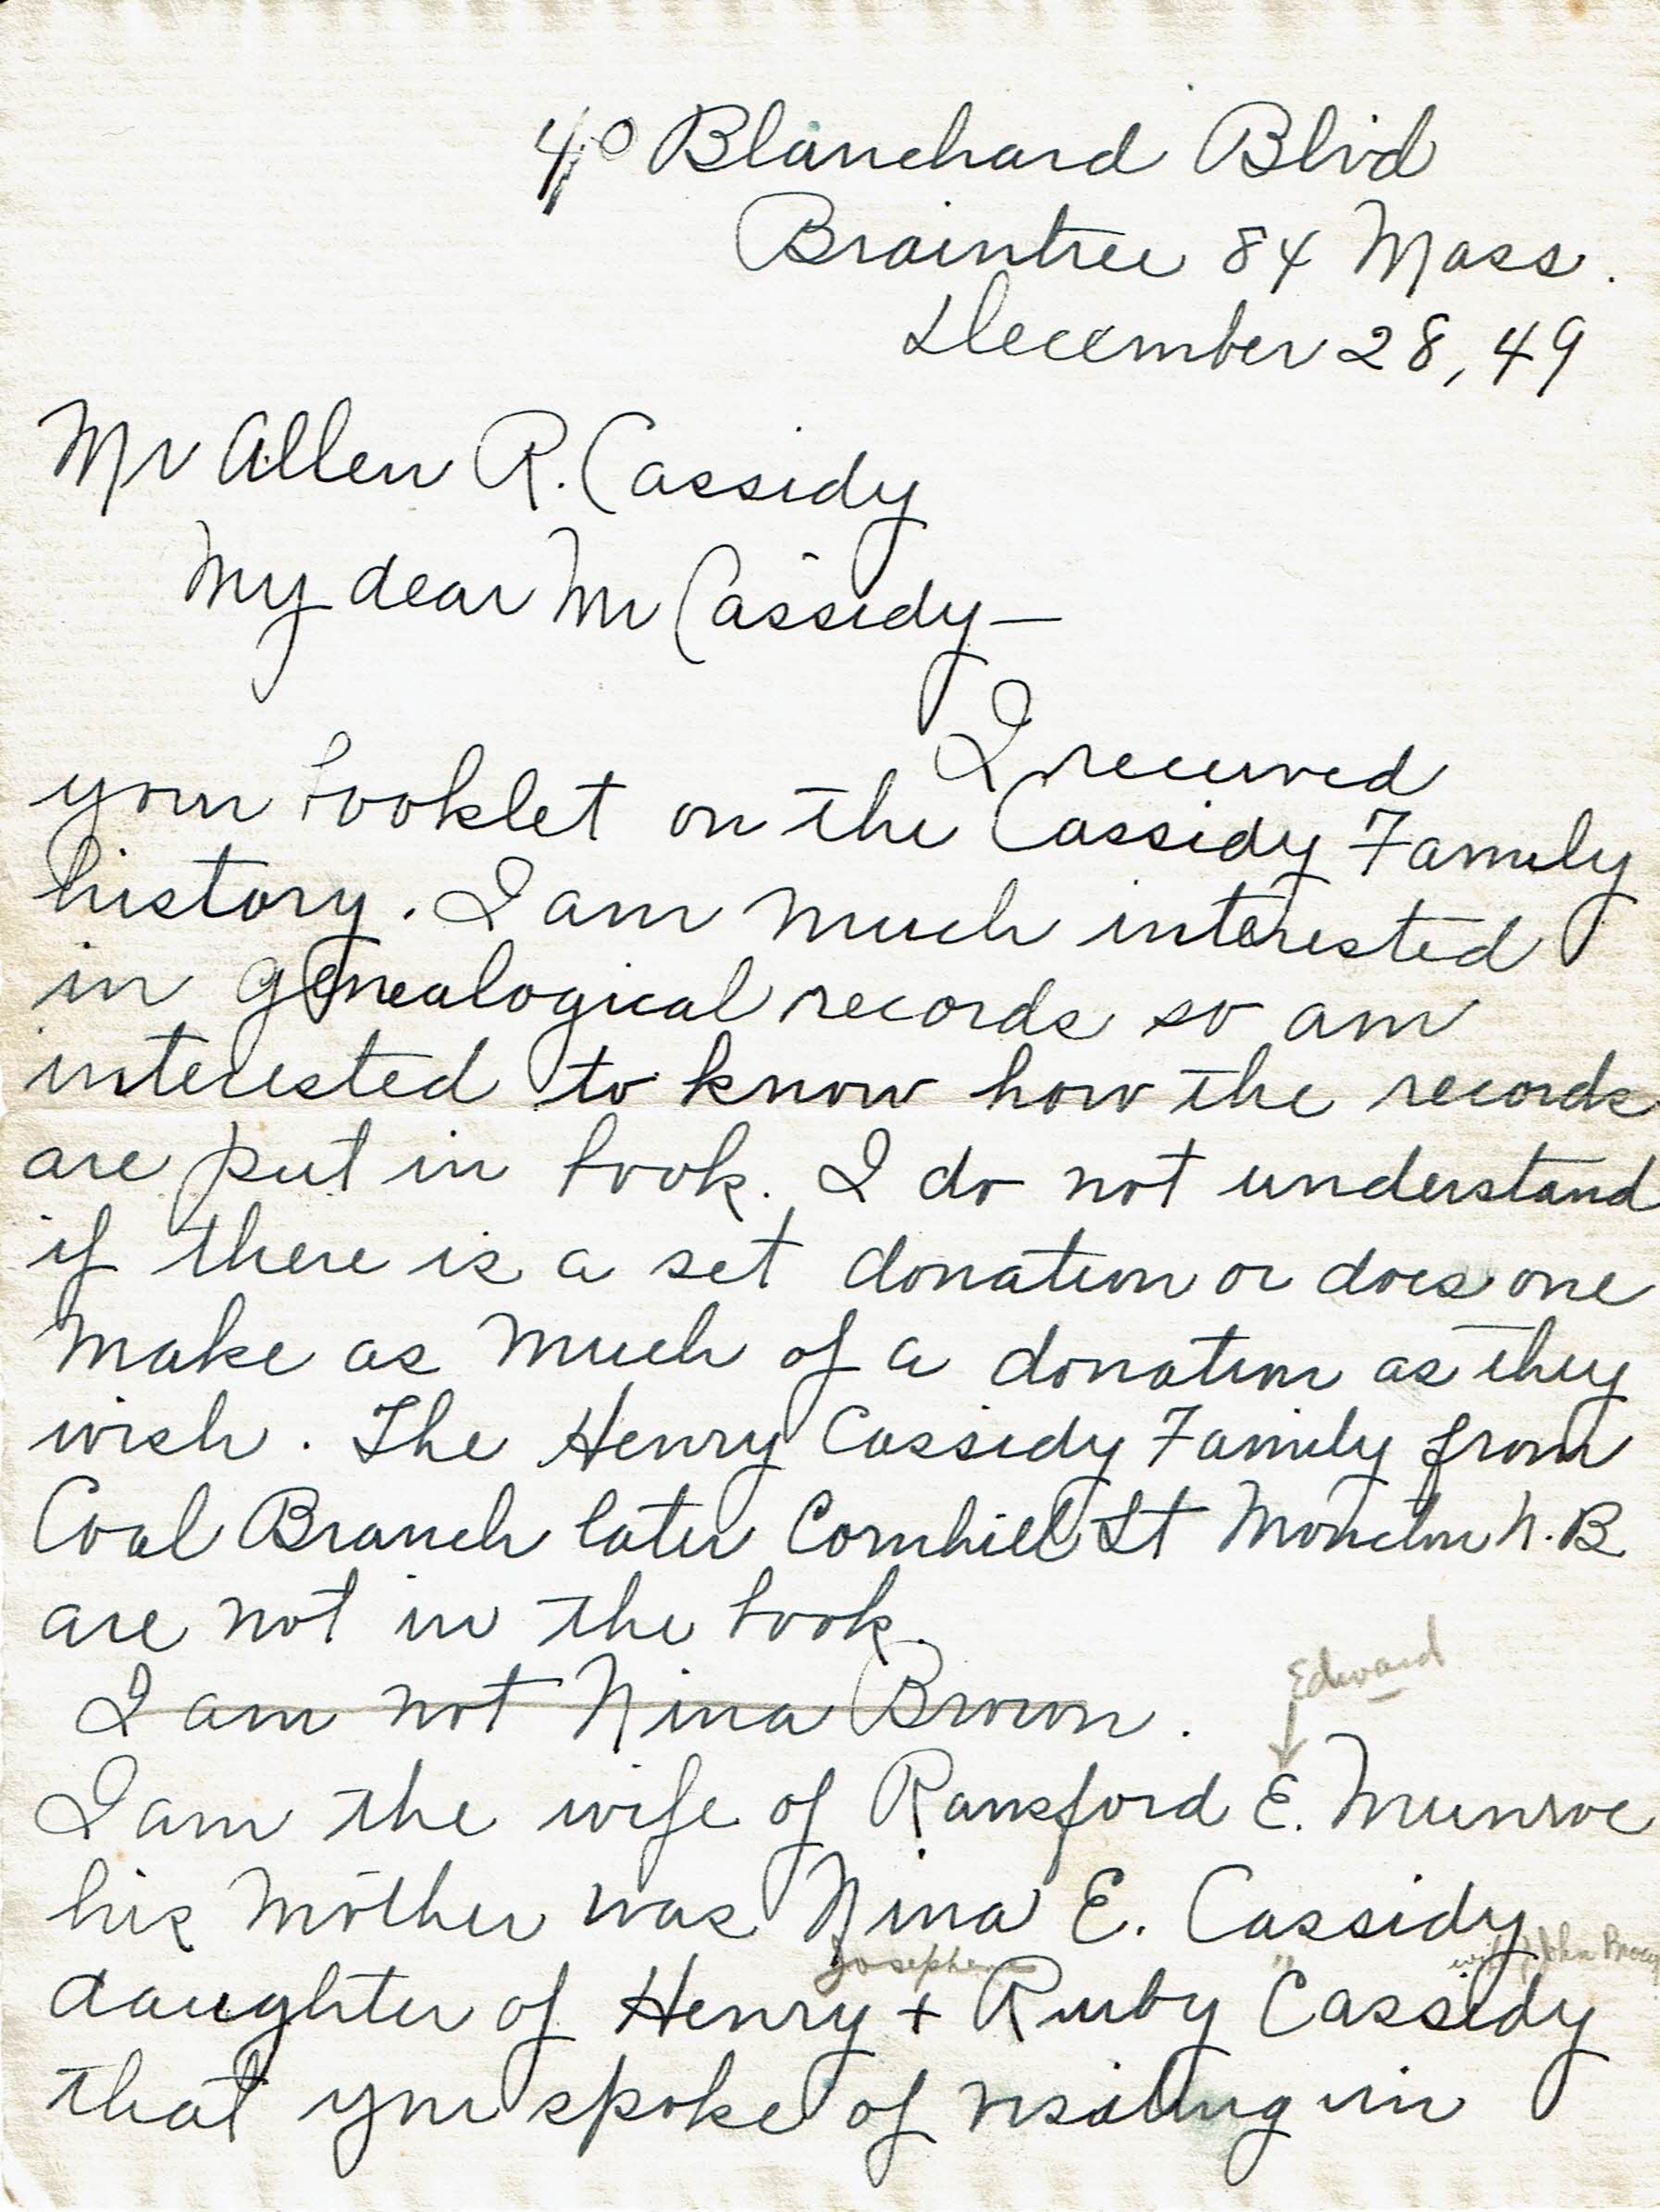 40 Blanchard Blvd
Braintree 84 Mass.
December 28, 49
Mr Allen R. Cassidy
My dear Mr Cassidy—
I received
your booklet on the Cassidy Family
history. I am much interested
in genealogical records so am
interested to know how the records
are put in book. I do not understand
if there is a set donation or does one
make as much of a donation as they
wish. The Henry Cassidy Family from
Coal Branch later Cornhill St Moncton N.B
are not in the book.
Edward
I am not Nina Brown.
I am the wife of Ransford E. Munroe
his mother was Nina E. Cassidy
Josephene " wife of John Brown
daughter of Henry + Ruby Cassidy
that you spoke of visiting in